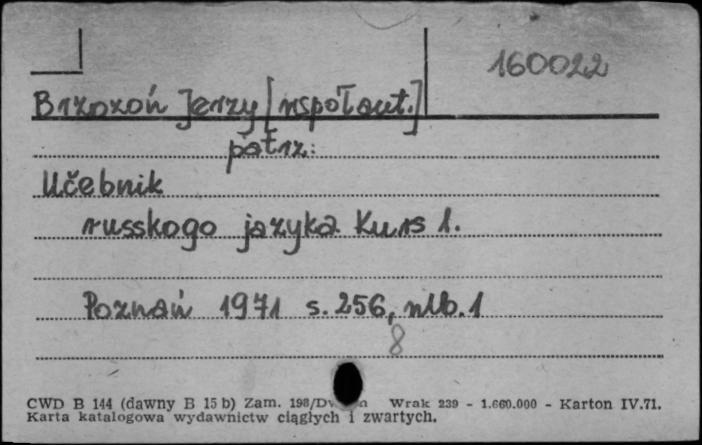 160022
Brzozoń Jerzy [współaut.]
patrz:
Učebnik
russkogo jazyka. Kurs 1.
Poznań 1971 s. 256, nlb. 1
8
CWD B 144 (dawny B 15 b) Zam. 198/Dw Wrak 239 - 1.660.000 - Karton IV.71.
Karta katalogowa wydawnictw ciągłych i zwartych.